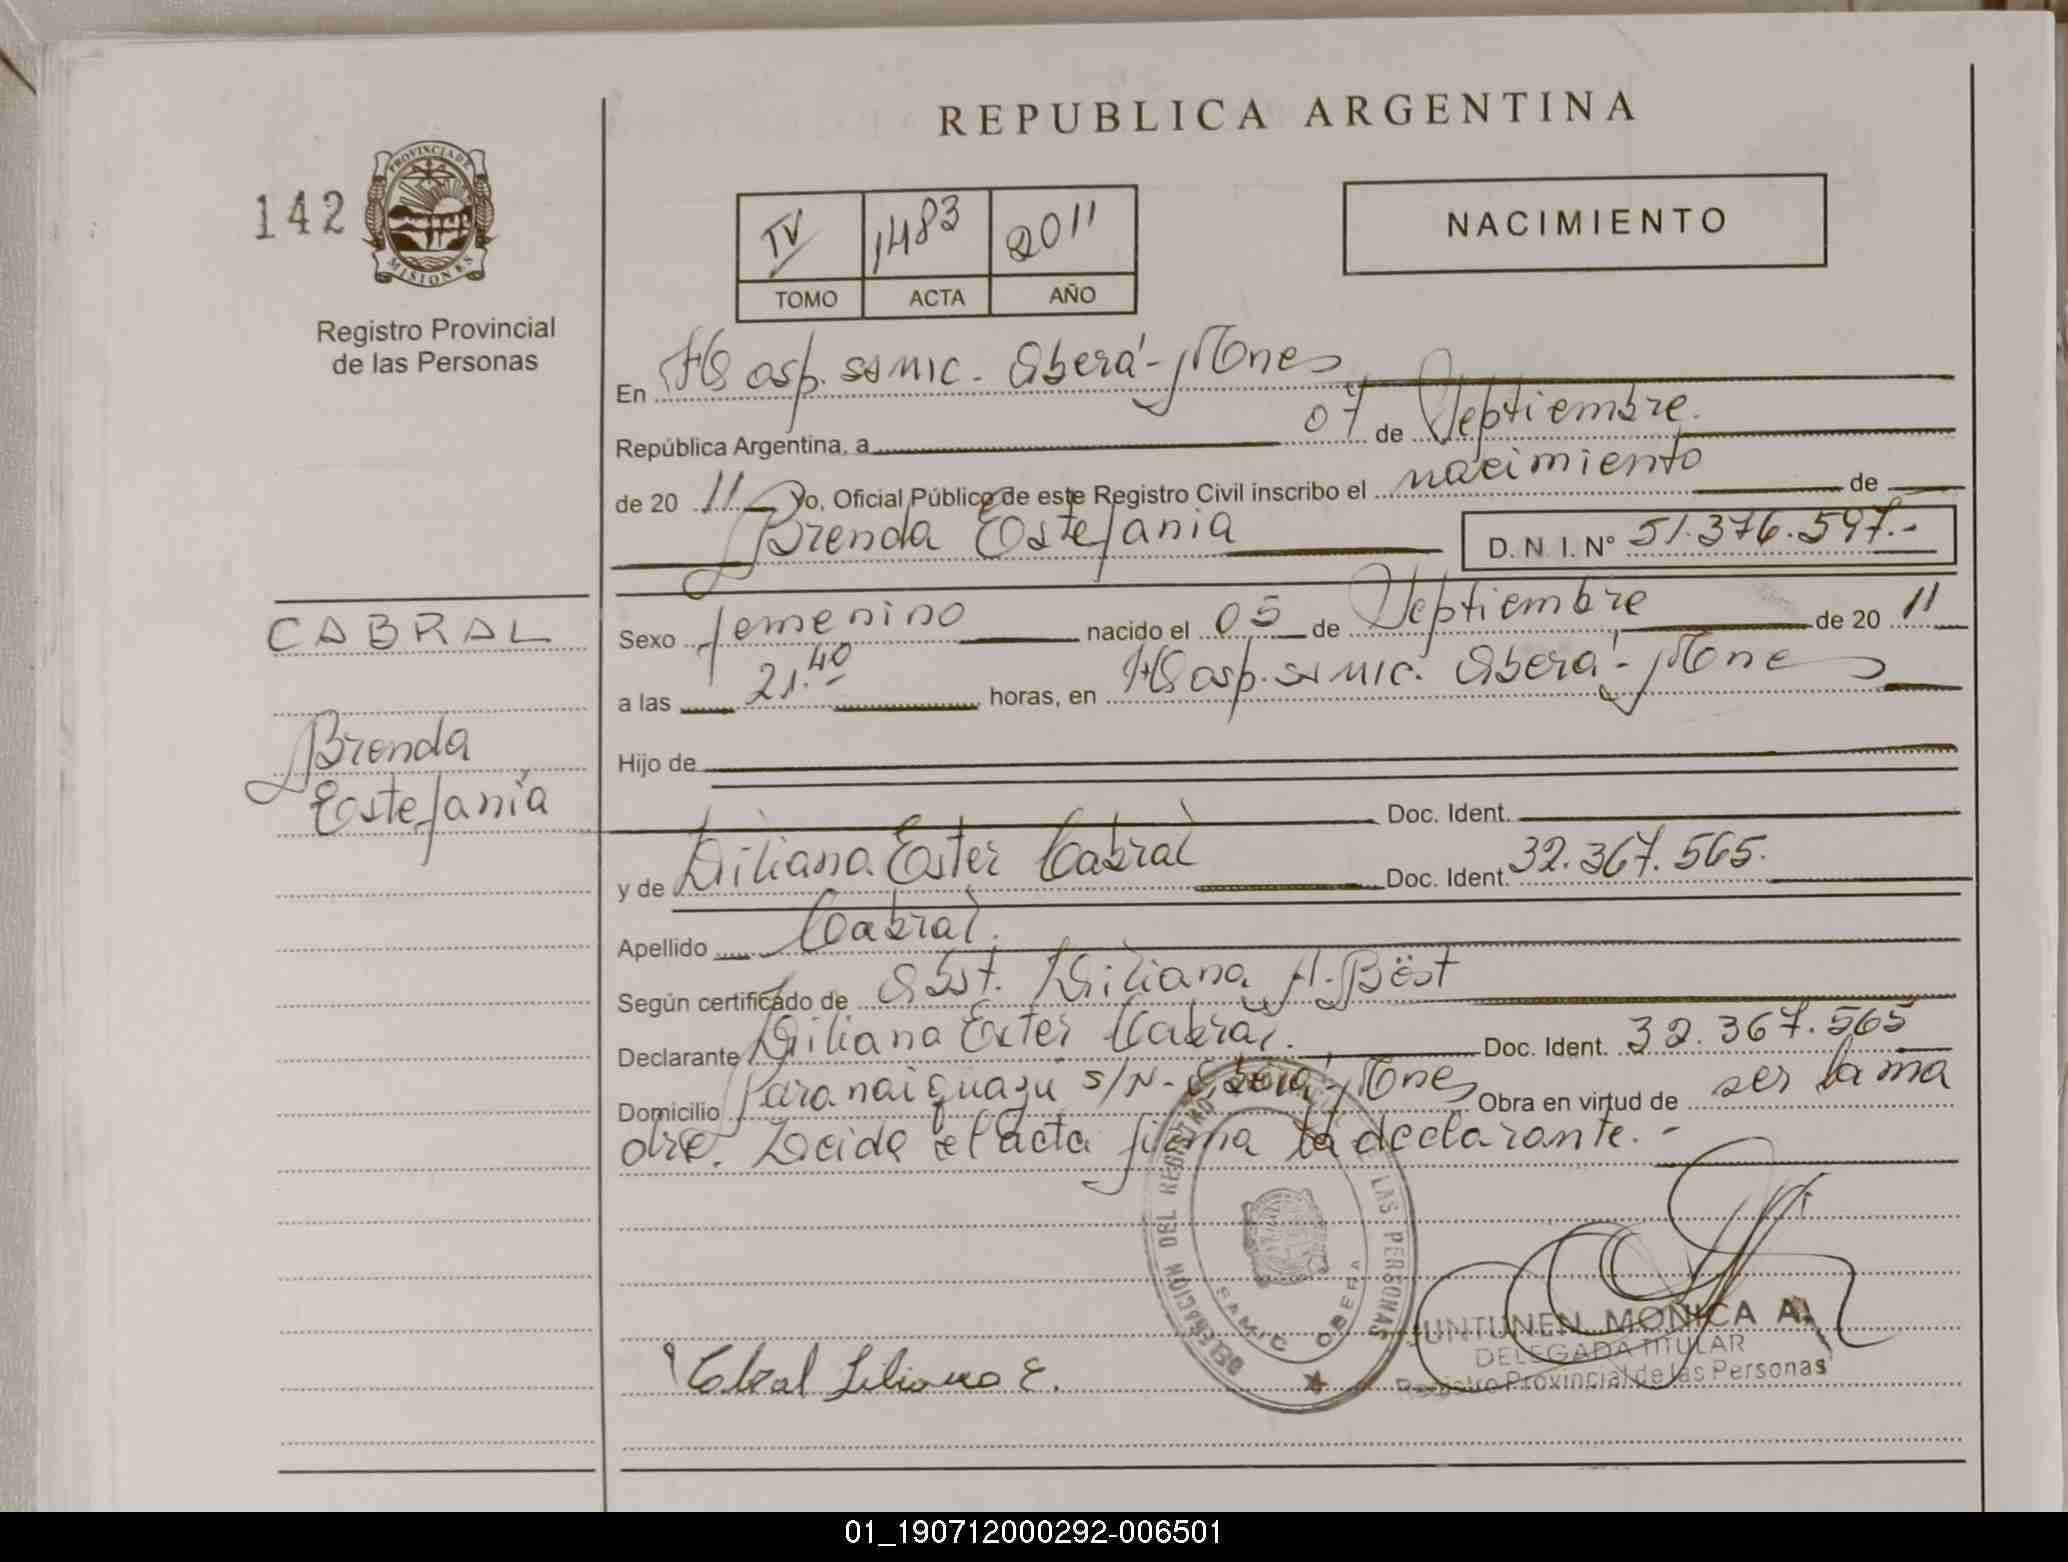 REPUBLICA ARGENTINA
142
PROVINCIA DE
MISIONES
Registro Provincial
de las Personas
IV 1483 2011
TOMO ACTA AÑO
NACIMIENTO
En Hosp. SAMIC. Oberá - Mnes
República Argentina, a 07 de Septiembre.
de 20 11 Yo, Oficial Público de este Registro Civil inscribo el nacimiento de
Brenda Estefania D. N. I. Nº 51.376.597.-
CABRAL
Brenda
Estefanía
Sexo femenino nacido el 05 de Septiembre de 20 11
a las 21.40 horas, en Hosp. SAMIC. Oberá - Mnes
Hijo de
Doc. Ident.
y de Liliana Ester Cabral Doc. Ident. 32.367.565.
Apellido Cabral.
Según certificado de Obst. Liliana A. Böst
Declarante Liliana Ester Cabral. Doc. Ident. 32.367.565
Domicilio Paranaiguazú S/N - Oberá, Mnes Obra en virtud de ser la ma
dre. Leida el acta firma la declarante. -
DELEGACION DEL REGISTRO LAS PERSONAS
SAMIC OBERA
JUNTUNEN MONICA A.
DELEGADA TITULAR
Registro Provincial de las Personas
Cabral Liliana E.
01_190712000292-006501